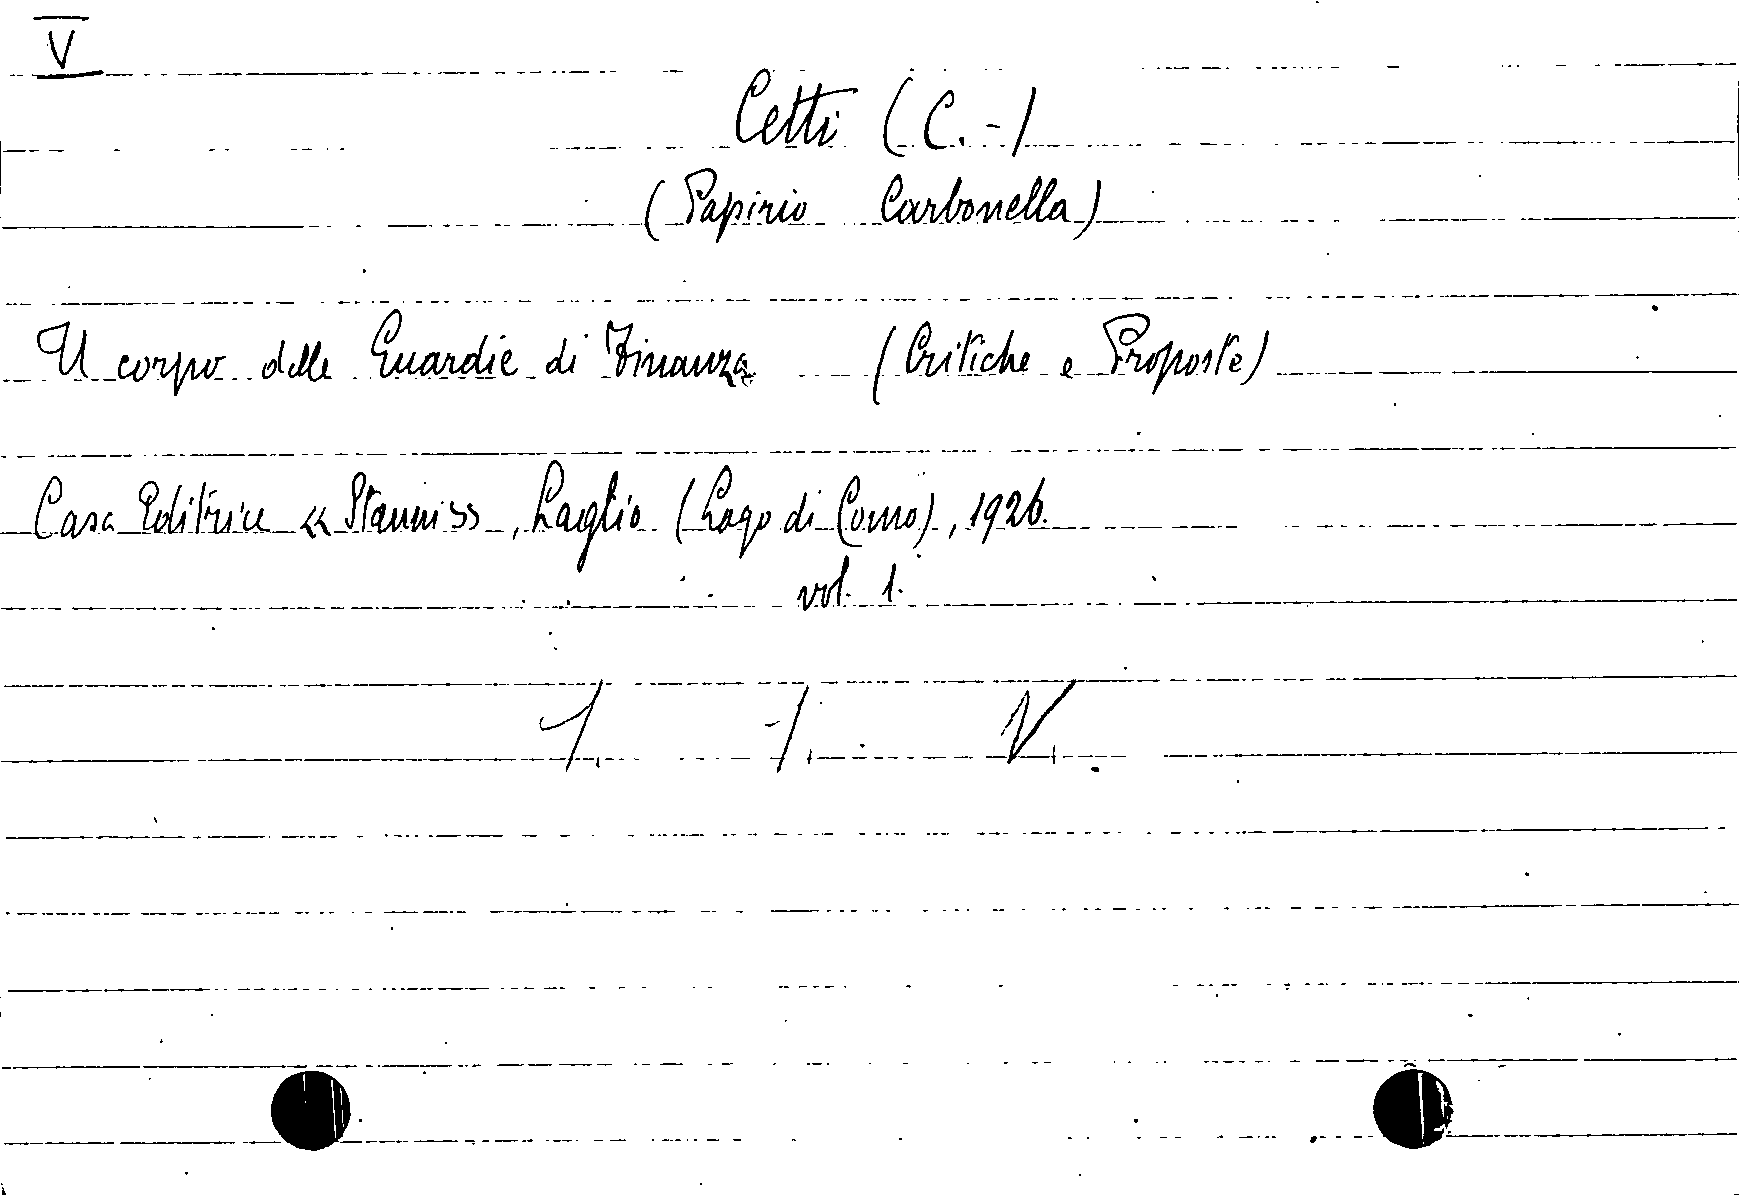 V
Cetti (C.-)
(Papirio Carbonella)
Il corpo delle Guardie di Finanza (Critiche e Proposte)
Casa Editrice « , Laglio (Lago di Como), 1926.
vol. 1.